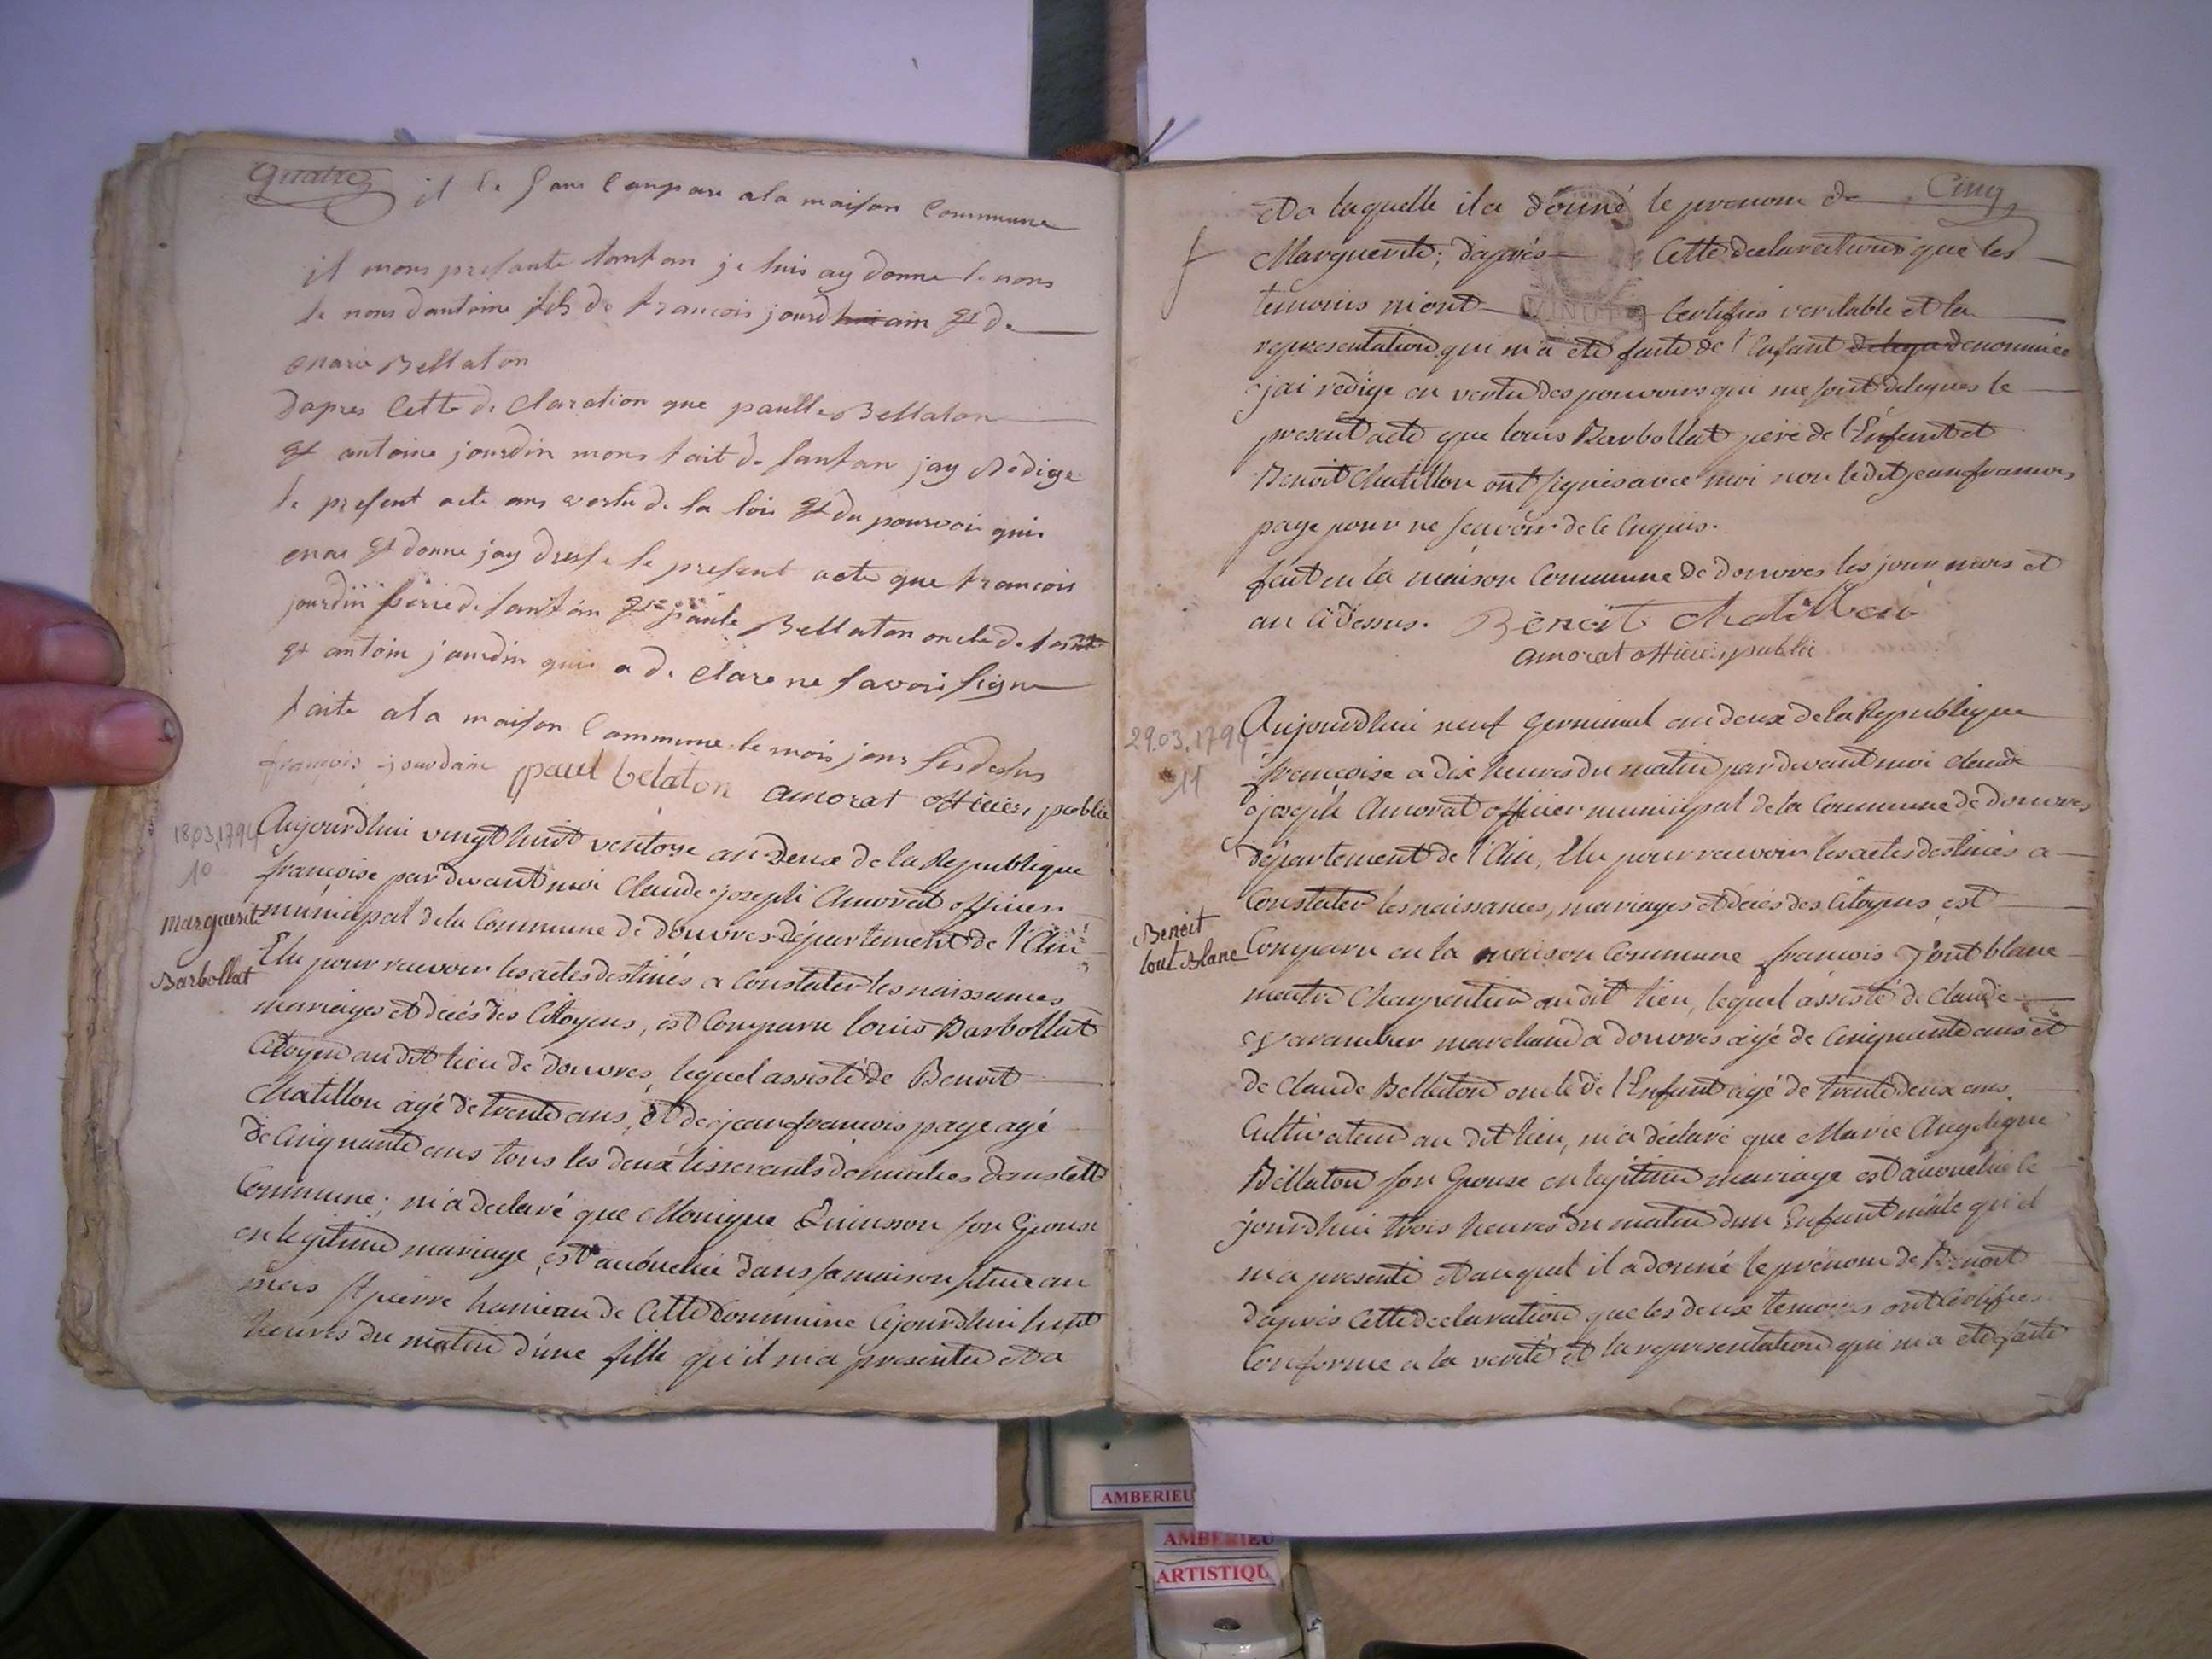 quatre
il se sans compare a la maison commune
il mons presante lanfan je luis ay donne le nons
le nons dantoine fils de francois jourdhuiain et de
marie Bellaton
dapres cette de claration que paulle Bellaton
et antoine jourdin mons fait de lanfan jay Redige
le present acte ans vertu de la loi et du pouvoir qui
mae et donne jay dresse le present acte que francois
jourdin perre de lanfan et paule Bellaton oncle de
et antoine jourdin qui a de clare ne savoir signe
faite a la maison commune le mois jour
françois jourdain paul belaton amorat officier public
18.03.1794
10
marguerite
Barbollat
Aujourdhui vingt huit ventose an deux de la Republique
françoise par devant moi Claude joseph Amorat officier
municipal de la Commune de douvres département de l'Ain
Elu pour recevoir les actes destinés a Constater les naissances
mariages et décés des Citoyens, est Comparu louis Barbollat
Citoyen au dit lieu de douvres, lequel assisté de Benoit
Chatillon agé de trente ans, et de jean francois page agé
de Cinquante ans tous les deux tisserants domiciliés dans cette
Commune; m'a declaré que Monique Quinsson son Epouse
en legitime mariage, est accouchée dans sa maison située au
mas St pierre hameau de Cette Commune Cejourdhui huit
heures du matin d'une fille qu'il m'a presentée et a
Cinq
et a laquelle il a donné le prenom de
Marguerite; d'après Cette declaration que les
temoins m'ont Certifiés veritable et la
MINUTE
representation qui m'a eté faite de l'Enfant denommée
j'ai redigé en vertu des pouvoirs qui me sont delegués le
present acte que louis Barbollat père de l'Enfant et
Benoit Chatillon ont signés avec moi non le dit jean francois
page pour ne sçavoir de ce Enquis.
fait en la maison Commune de douvres les jour mois et
an ci dessus. Benoit Chatillon
amorat officier public
29.03.1794
11
Benoit
tout Blanc
Aujourdhui neuf Germinal an deux de la Republique
françoise a dix heures du matin par devant moi claude
joseph Amorat officier municipal de la Commune de douvres
département de l'Ain, Elu pour recevoir les actes destinés a
Constater les naissances, mariages et décés des Citoyens est
Comparu en la maison Commune françois Tout blanc
maitre Charpentier au dit lieu, lequel assisté de Claude
Varambier marchand a douvres agé de Cinquante ans et
de Claude Bellaton oncle de l'Enfant agé de trente deux ans
Cultivateur au dit lieu, m'a déclaré que Marie Angelique
Bellaton son Epouse en legitime mariage est accouchée ce
jourdhui trois heures du matin d'un Enfant mâle qu'il
m'a presenté et auquel il a donné le prénom de Benoit
d'après Cette declaration que les deux temoins ont certifiés
Conforme a la verité et la representation qui m'a eté faite
AMBERIEU
AMBERIEU
ARTISTIQU